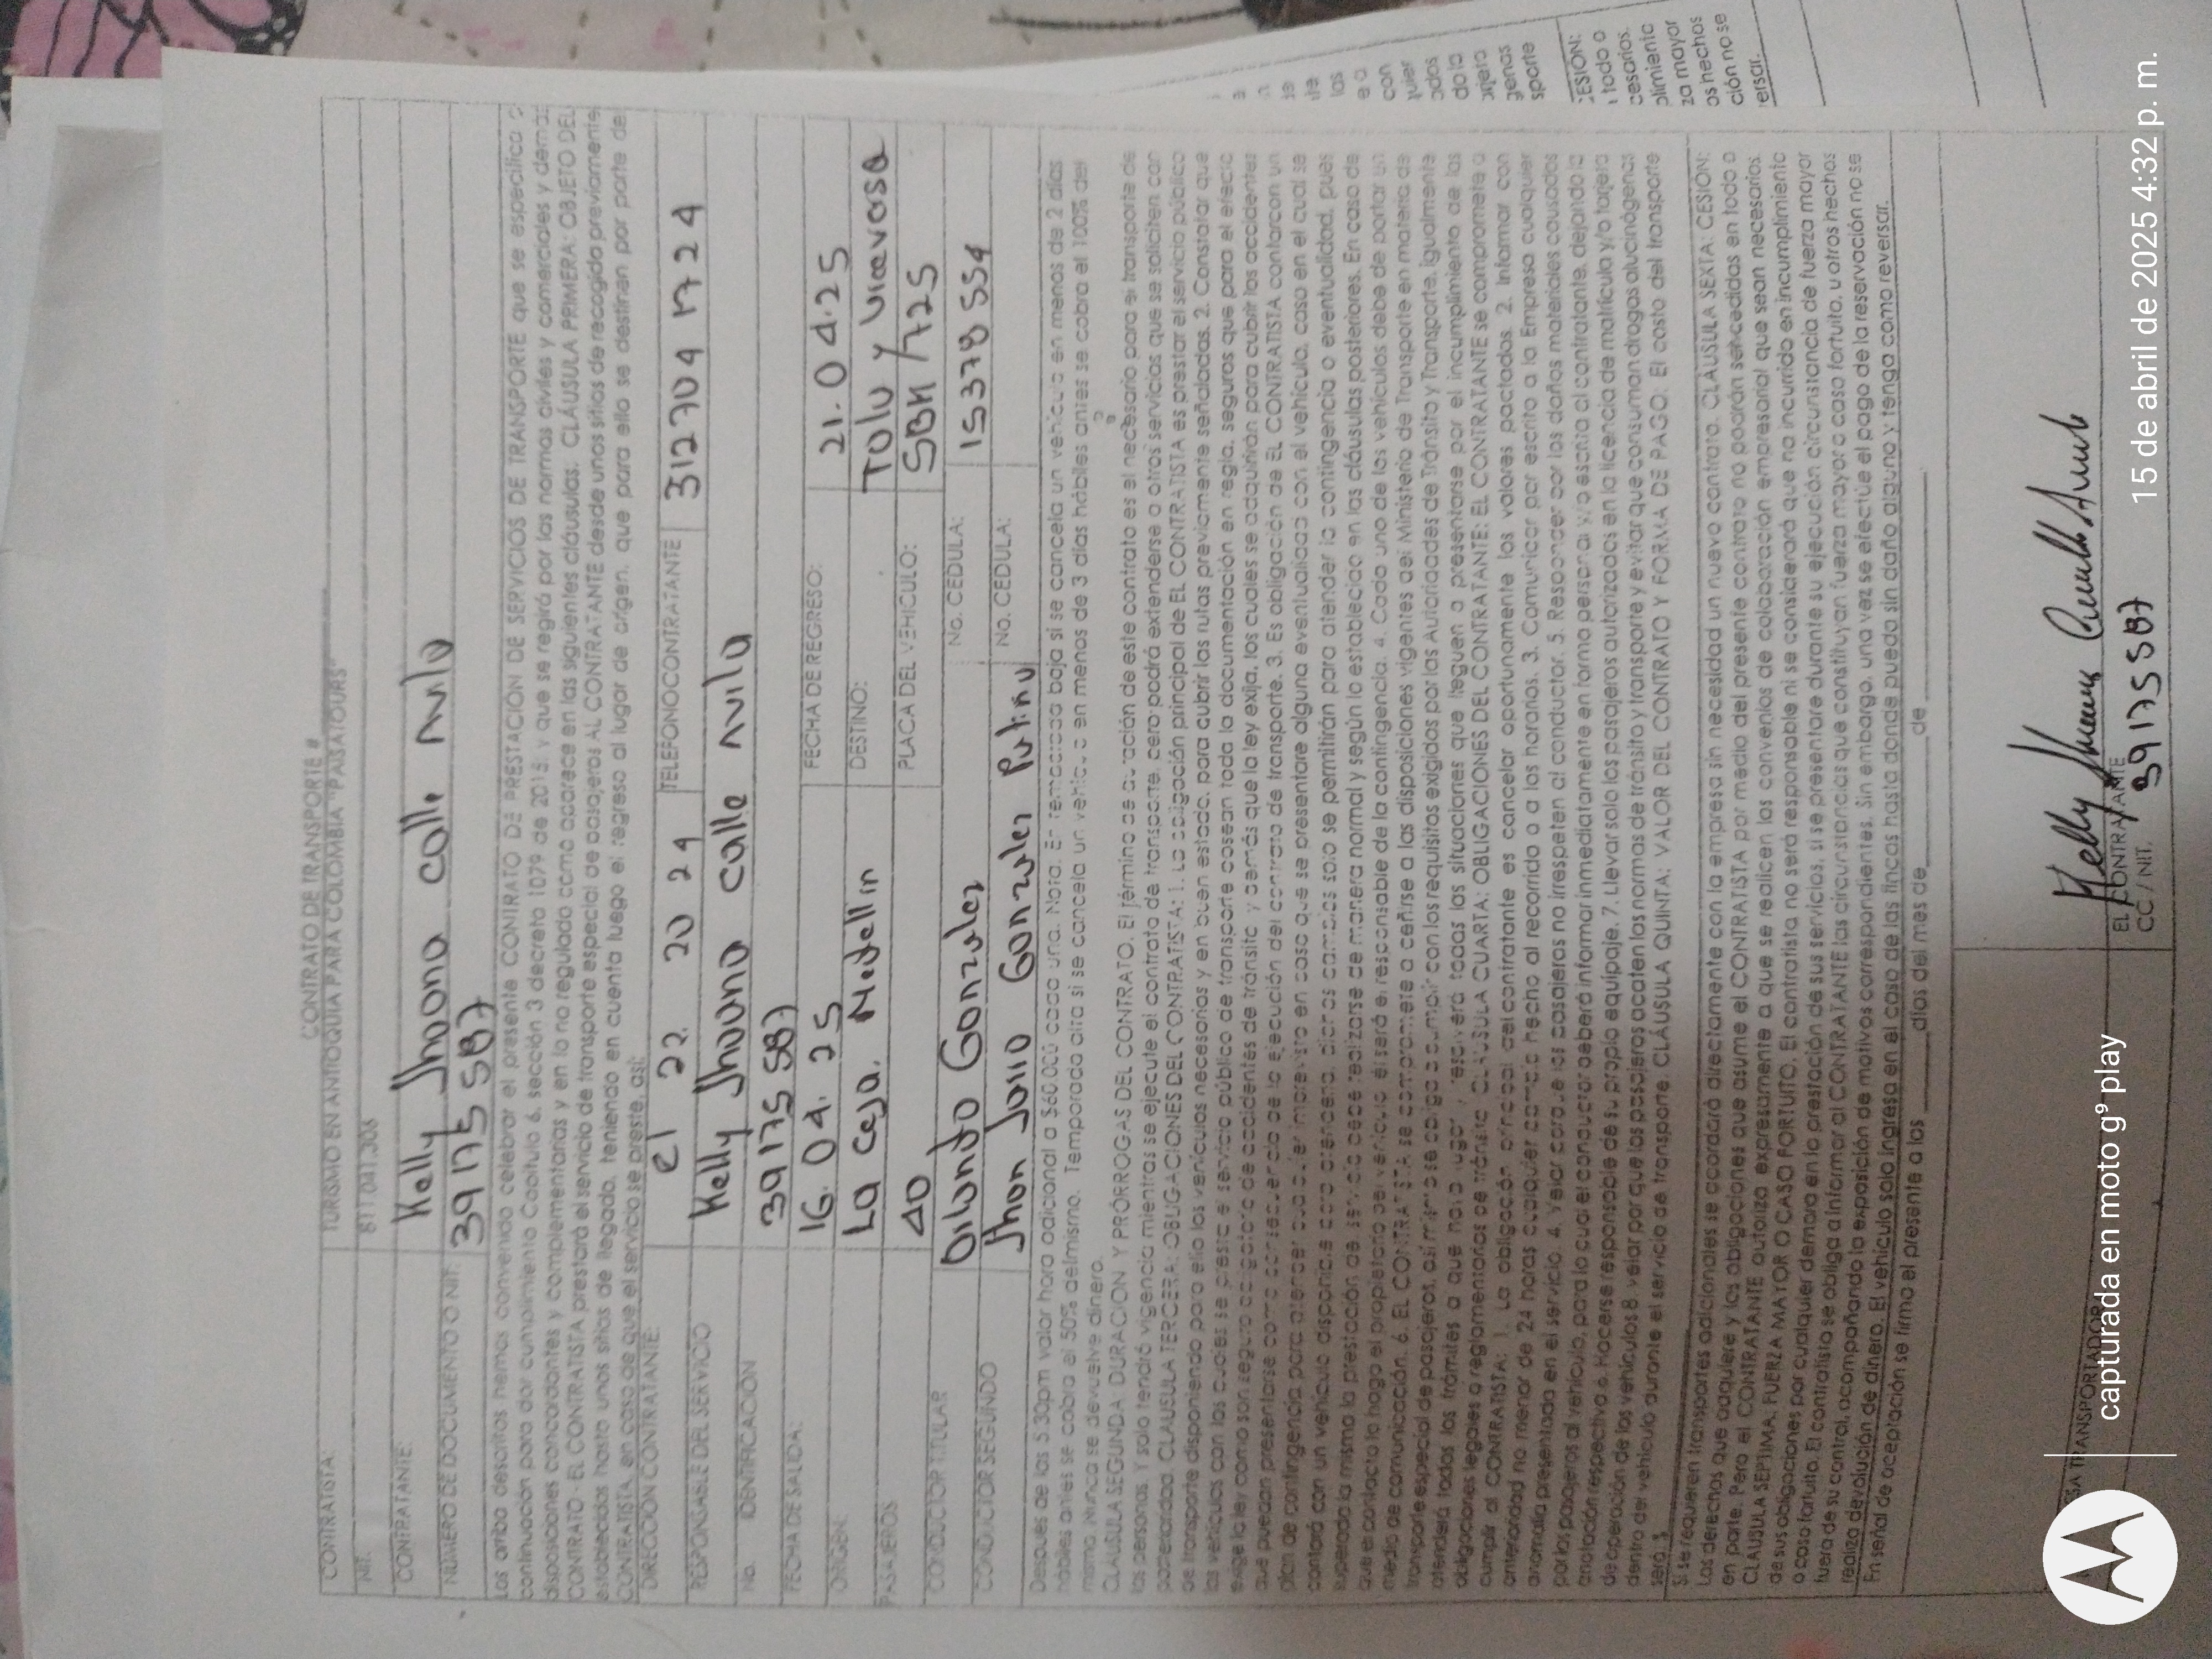 CONTRATO DE TRANSPORTE #
CONTRATISTA: TURISMO EN ANTIOQUIA PARA COLOMBIA "PAISATOURS"
NIT. 811.041.306
CONTRATANTE: Kelly Jhoana calle Avila
NÚMERO DE DOCUMENTO O NIT: 39175587
Los arriba descritos hemos convenido celebrar el presente CONTRATO DE PRESTACIÓN DE SERVICIOS DE TRANSPORTE que se especifica a
continuación para dar cumplimiento Capítulo 6, sección 3 decreto 1079 de 2015; y que se regirá por las normas civiles y comerciales y demás
disposiciones concordantes y complementarias y en lo no regulado como aparece en las siguientes cláusulas. CLÁUSULA PRIMERA: OBJETO DEL
CONTRATO - EL CONTRATISTA prestará el servicio de transporte especial de pasajeros AL CONTRATANTE desde unos sitios de recogida previamente
establecidos hasta unos sitios de llegada, teniendo en cuenta luego el regreso al lugar de origen, que para ello se destinen por parte del
CONTRATISTA, en caso de que el servicio se preste, así:
DIRECCIÓN CONTRATANTE: cl 22 20 24 TELEFONOCONTRATANTE 312704 1724
RESPONSABLE DEL SERVICIO Kelly Jhoana calle Avila
No. IDENTIFICACION 39175587
FECHA DE SALIDA: 16.04.25 FECHA DE REGRESO: 21.04.25
ORIGEN: La ceja. Medellin DESTINO: Tolu y
PASAJEROS 40 PLACA DEL VEHICULO: 725
CONDUCTOR TITULAR Gonzalez No. CEDULA: 15378554
CONDUCTOR SEGUNDO Jhon Gonzalez No. CEDULA:
Después de las 5:30pm valor hora adicional a $60.000 cada una. Nota: En temporada baja si se cancela un vehículo en menos de 2 días
hábiles antes se cobra el 50% del mismo. Temporada alta si se cancela un vehículo en menos de 3 días hábiles antes se cobra el 100% del
mismo. Nunca se devuelve dinero.
CLÁUSULA SEGUNDA: DURACIÓN Y PRÓRROGAS DEL CONTRATO. El término de duración de este contrato es el necesario para el transporte de
las personas. Y solo tendrá vigencia mientras se ejecute el contrato de transporte, pero podrá extenderse a otros servicios que se soliciten con
posterioridad. CLAUSULA TERCERA: OBLIGACIONES DEL CONTRATISTA: 1. La obligación principal de EL CONTRATISTA es prestar el servicio público
de transporte disponiendo para ello los vehículos necesarios y en buen estado, para cubrir las rutas previamente señaladas. 2. Constatar que
los vehículos con los cuales se presta el servicio público de transporte posean toda la documentación en regla, seguros que para el efecto
exige la ley como son seguro obligatorio de accidentes de tránsito y demás que la ley exija, los cuales se adquirirán para cubrir los accidentes
que puedan presentarse como consecuencia de la ejecución del contrato de transporte. 3. Es obligación de EL CONTRATISTA contar con un
plan de contingencia para atender cualquier imprevisto en caso que se presentare alguna eventualidad con el vehículo, caso en el cual se
contará con un vehículo disponible para atenderla, dichos cambios solo se permitirán para atender la contingencia o eventualidad, pues
superada la misma la prestación de servicio debe realizarse de manera normal y según lo establecido en las cláusulas posteriores. En caso de
que el contacto lo haga el propietario del vehículo él será el responsable de la contingencia. 4. Cada uno de los vehículos debe de portar un
medio de comunicación. 6. EL CONTRATISTA se compromete a ceñirse a las disposiciones vigentes del Ministerio de Transporte en materia de
transporte especial de pasajeros, así mismo se obliga a cumplir con los requisitos exigidos por las Autoridades de Tránsito y Transporte, igualmente
atenderá todos los trámites a que haya lugar y resolverá todas las situaciones que lleguen a presentarse por el incumplimiento de las
obligaciones legales o reglamentarias de tránsito. CLÁUSULA CUARTA: OBLIGACIONES DEL CONTRATANTE: EL CONTRATANTE se compromete a
cumplir al CONTRATISTA: 1. La obligación principal del contratante es cancelar oportunamente los valores pactados. 2. Informar con
anterioridad no menor de 24 horas cualquier cambio hecho al recorrido o a los horarios. 3. Comunicar por escrito a la Empresa cualquier
anomalía presentada en el servicio. 4. Velar porque los pasajeros no irrespeten al conductor. 5. Responder por los daños materiales causados
por los pasajeros al vehículo, para lo cual el conductor deberá informar inmediatamente en forma personal y/o escrita al contratante, dejando la
anotación respectiva 6. Hacerse responsable de su propio equipaje. 7. Llevar solo los pasajeros autorizados en la licencia de matrícula y/o tarjeta
de operación de los vehículos 8. velar por que los pasajeros acaten las normas de tránsito y transporte y evitar que consuman drogas alucinógenas
dentro del vehículo durante el servicio de transporte. CLÁUSULA QUINTA: VALOR DEL CONTRATO Y FORMA DE PAGO: El costo del transporte
será: $
Si se requieren transportes adicionales se acordará directamente con la empresa sin necesidad un nuevo contrato. CLÁUSULA SEXTA: CESIÓN:
Los derechos que adquiere y las obligaciones que asume el CONTRATISTA por medio del presente contrato no podrán ser cedidas en todo o
en parte. Pero el CONTRATANTE autoriza expresamente a que se realicen los convenios de colaboración empresarial que sean necesarios.
CLÁUSULA SEPTIMA: FUERZA MAYOR O CASO FORTUITO. El contratista no será responsable ni se considerará que ha incurrido en incumplimiento
de sus obligaciones por cualquier demora en la prestación de sus servicios, si se presentare durante su ejecución circunstancia de fuerza mayor
o caso fortuito. El contratista se obliga a informar al CONTRATANTE las circunstancias que constituyan fuerza mayor o caso fortuito, u otros hechos
fuera de su control, acompañando la exposición de motivos correspondientes. Sin embargo, una vez se efectúe el pago de la reservación no se
realiza devolución de dinero. El vehículo solo ingresa en el caso de las fincas hasta donde pueda sin daño alguno y tenga como reversar.
En señal de aceptación se firma el presente a los ______ días del mes de ______ de ______
Kelly Jhoana
EL CONTRATANTE
CC / NIT. 39175587
TRANSPORTADORA
ESIÓN:
todo o
cesarios.
plimiento
za mayor
os hechos
ción no se
ersar.
capturada en moto g⁹ play
15 de abril de 2025 4:32 p. m.